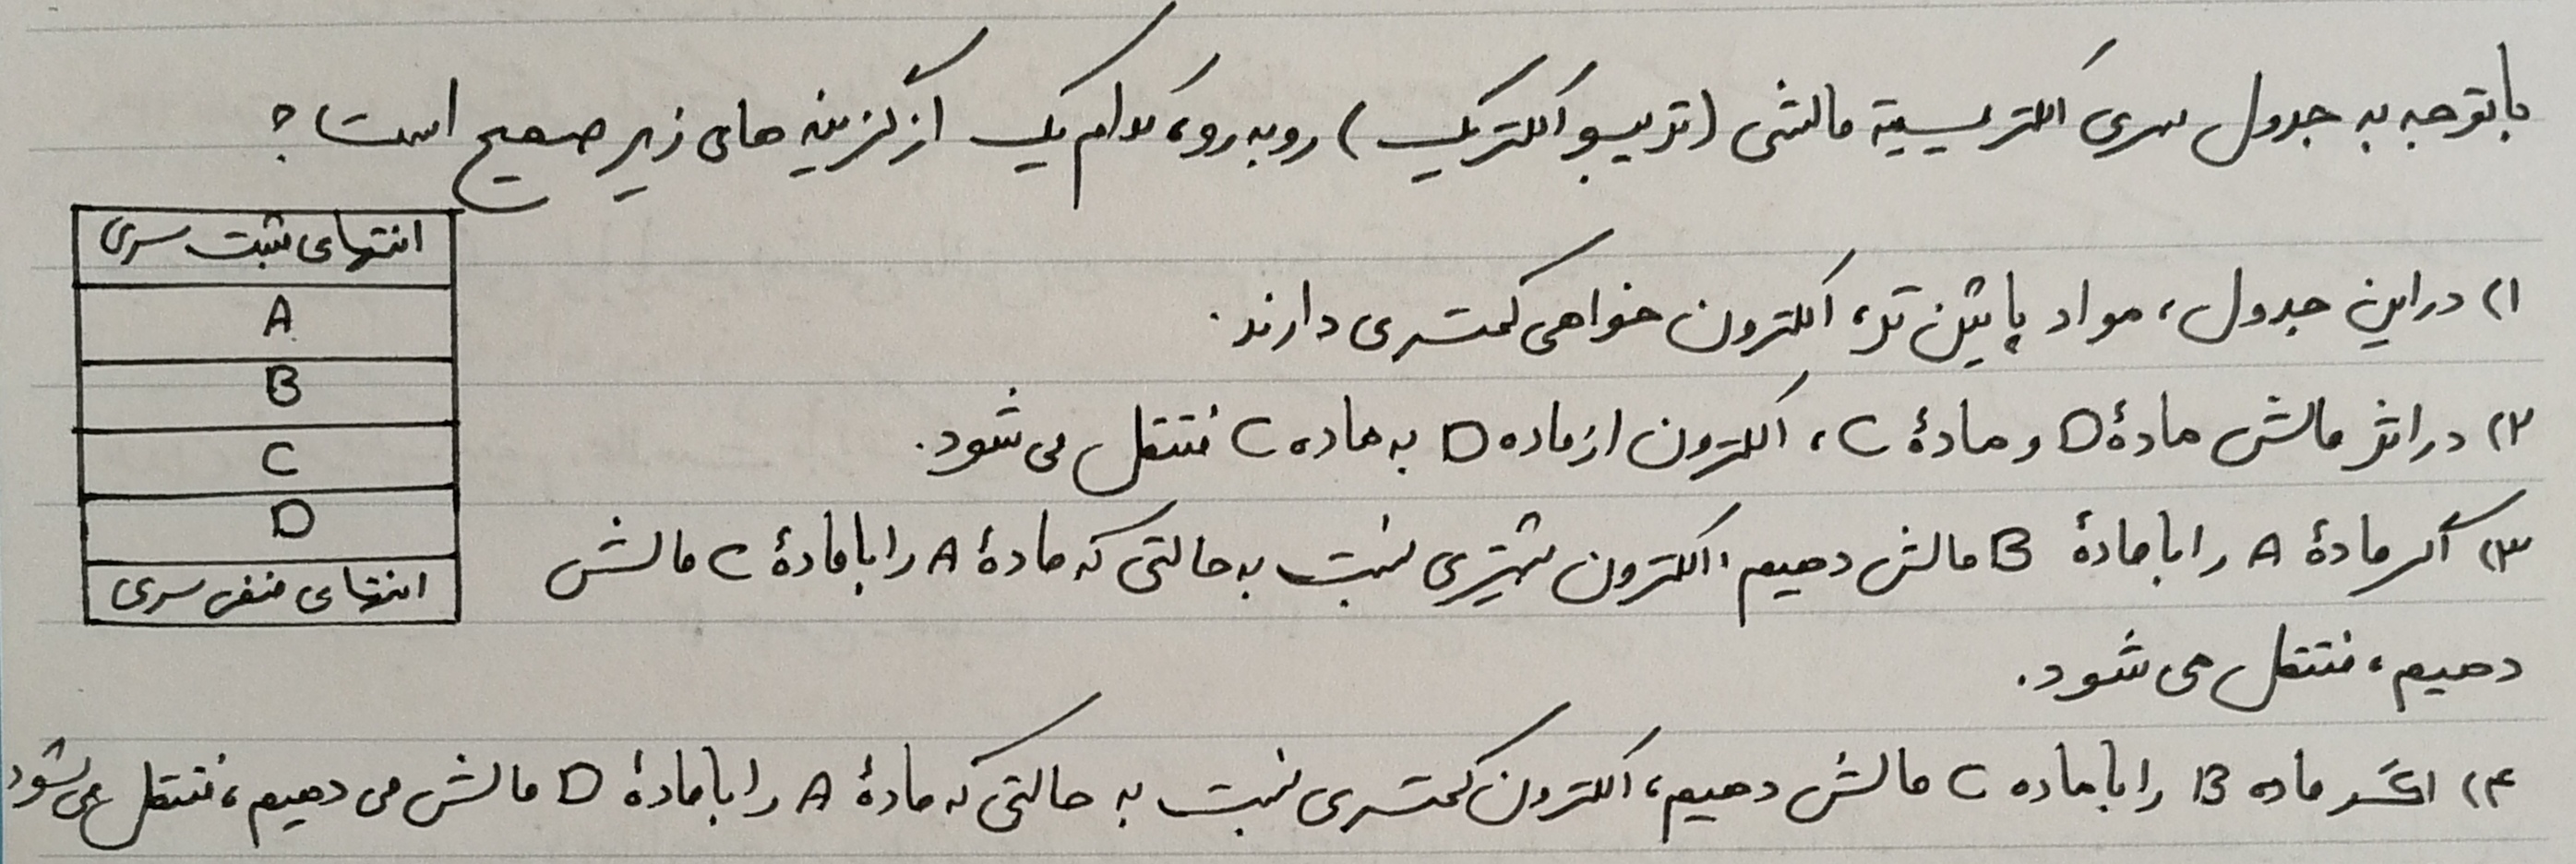 باتوجه به جدول سری الکتریسیتهٔ مالشی (تریبوالکتریک) روبه‌رو، کدام یک از گزینه های زیر صحیح است؟
انتهای مثبت سری
A
B
C
D
انتهای منفی سری
۱) در این جدول، مواد پائین تر، الکترون خواهی کمتری دارند.
۲) در اثر مالش مادهٔ D و مادهٔ C، الکترون از ماده D به ماده C منتقل می شود.
۳) اگر مادهٔ A را با مادهٔ B مالش دهیم، الکترون بیشتری نسبت به حالتی که مادهٔ A را با مادهٔ C مالش
دهیم، منتقل می شود.
۴) اگر ماده B را با ماده C مالش دهیم، الکترون کمتری نسبت به حالتی که مادهٔ A را با مادهٔ D مالش می دهیم، منتقل می شود